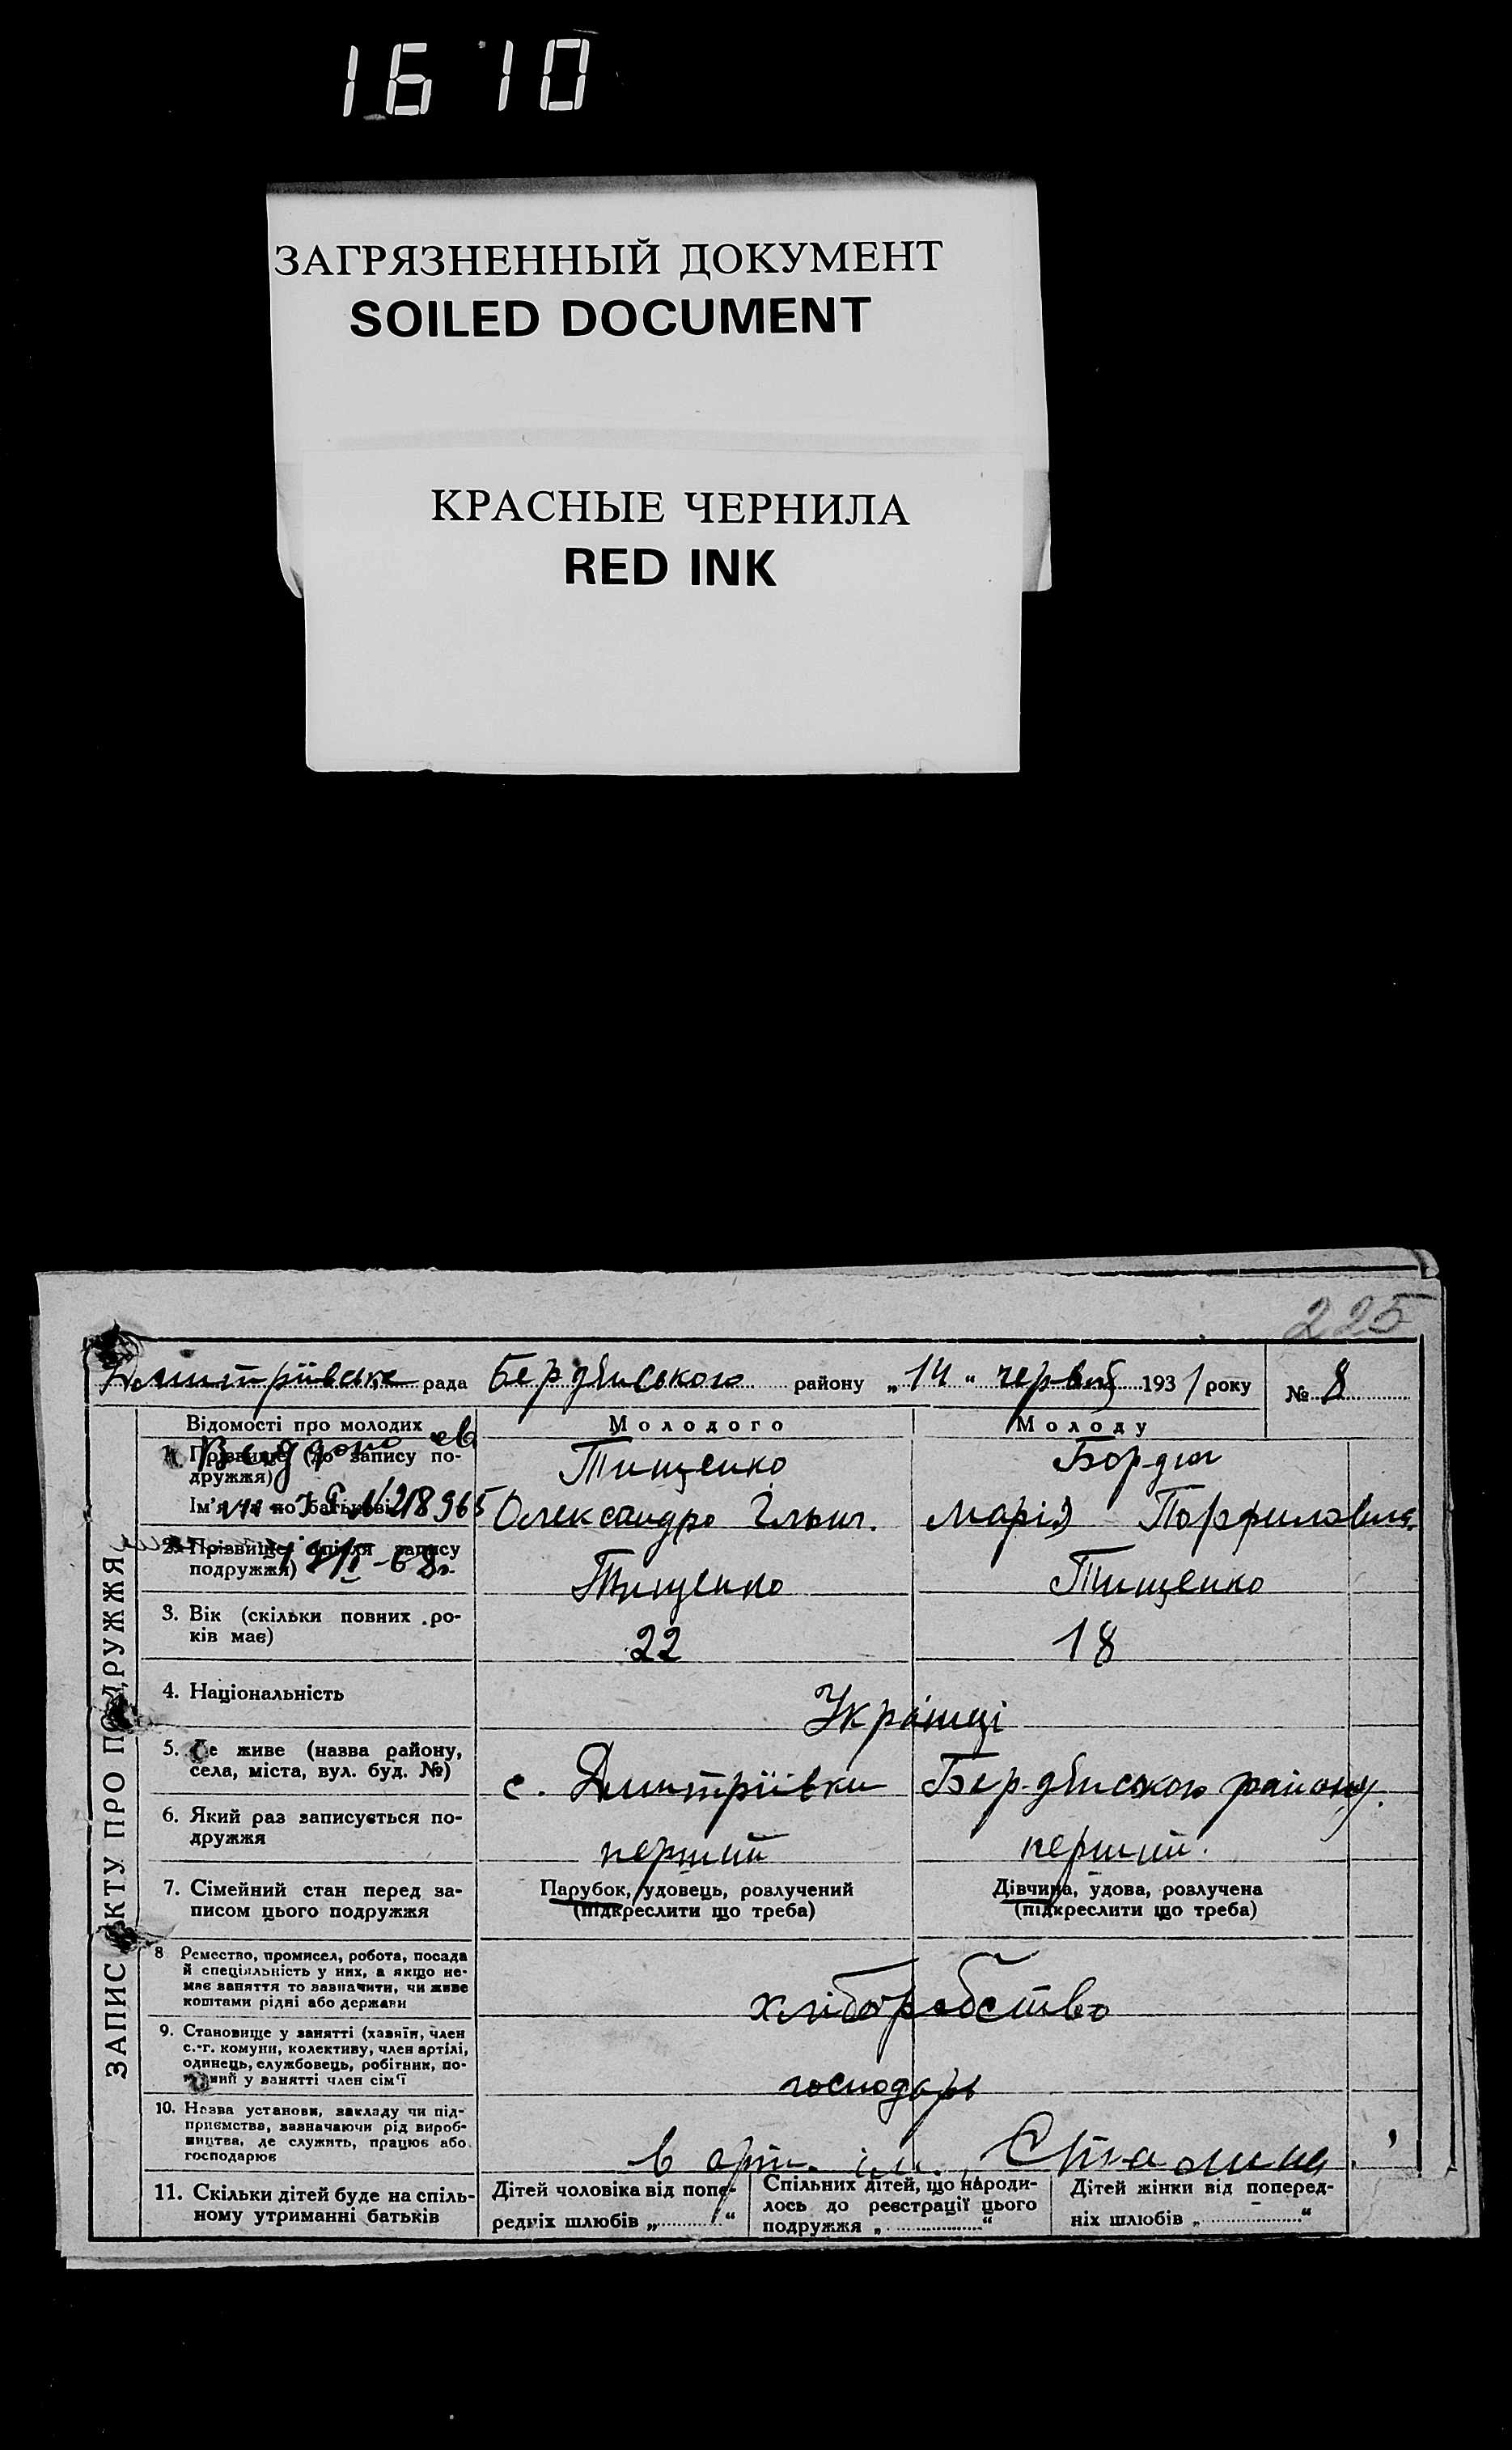 1610
ЗАГРЯЗНЕННЫЙ ДОКУМЕНТ
SOILED DOCUMENT
КРАСНЫЕ ЧЕРНИЛА
RED INK
225
Дмитріївська рада Бердянського району „14" червня 1931 року № 8
ЗАПИС АКТУ ПРО ПОДРУЖЖЯ
Відомості про молодих
Молодого
Молоду
1. Прізвище (до запису по-
дружжя)
Тищенко
Бордюг
Ім'я та по батькові
№ 218965
Олександр Ілыч.
Марія Порфиловна
2. Прізвище (після запису
подружжя)
Тищенко
Тищенко
3. Вік (скільки повних ро-
ків має)
22
18
4. Національність
Українці
5. Де живе (назва району,
села, міста, вул. буд. №)
с. Дмитріївки Бердянського району.
6. Який раз записується по-
дружжя
перший
перший.
7. Сімейний стан перед за-
писом цього подружжя
Парубок, удовець, розлучений
(підкреслити що треба)
Дівчина, удова, розлучена
(підкреслити що треба)
8 Ремество, промисел, робота, посада
й спеціяльність у них, а якщо не-
має заняття то зазначити, чи живе
коштами рідні або держави
хліборобство
9. Становище у занятті (хазяїн, член
с.-г. комуни, колективу, член артілі,
одинець, службовець, робітник, по-
мічний у занятті член сім'ї
господарь
10. Назва установи, закладу чи під-
приємства, зазначаючи рід вироб-
ництва, де служить, працює або
господарює
в арт. ім. Сталина.
11. Скільки дітей буде на спіль-
ному утриманні батьків
Дітей чоловіка від попе-
редніх шлюбів „ "
Спільних дітей, що народи-
лось до реєстрації цього
подружжя „ "
Дітей жінки від поперед-
ніх шлюбів „ - "